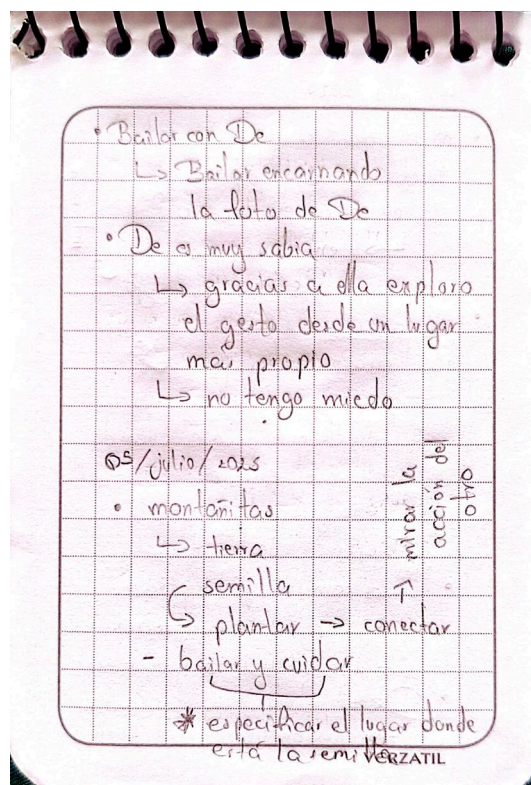 • Bailar con De
↳ Bailar encarnando
la foto de De
• De es muy sabia
↳ gracias a ella exploro
el gesto desde un lugar
más propio
↳ no tengo miedo
05/julio/2025
• montañitas
↳ tierra
semilla
↳ plantar → conectar
→ mirar la
acción del
otro
- bailar y cuidar
* especificar el lugar donde
está la semilla
VERZATIL